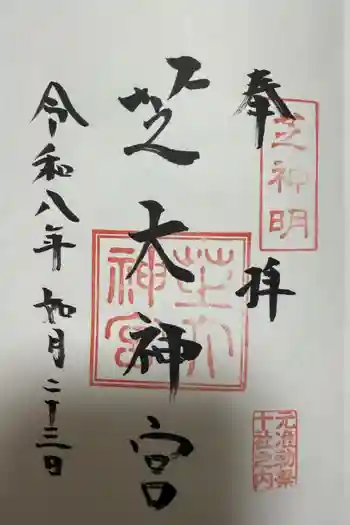 奉拝
芝神明
元准勅祭
十社之内
芝大神宮
芝大神宮
令和八年 如月二十三日